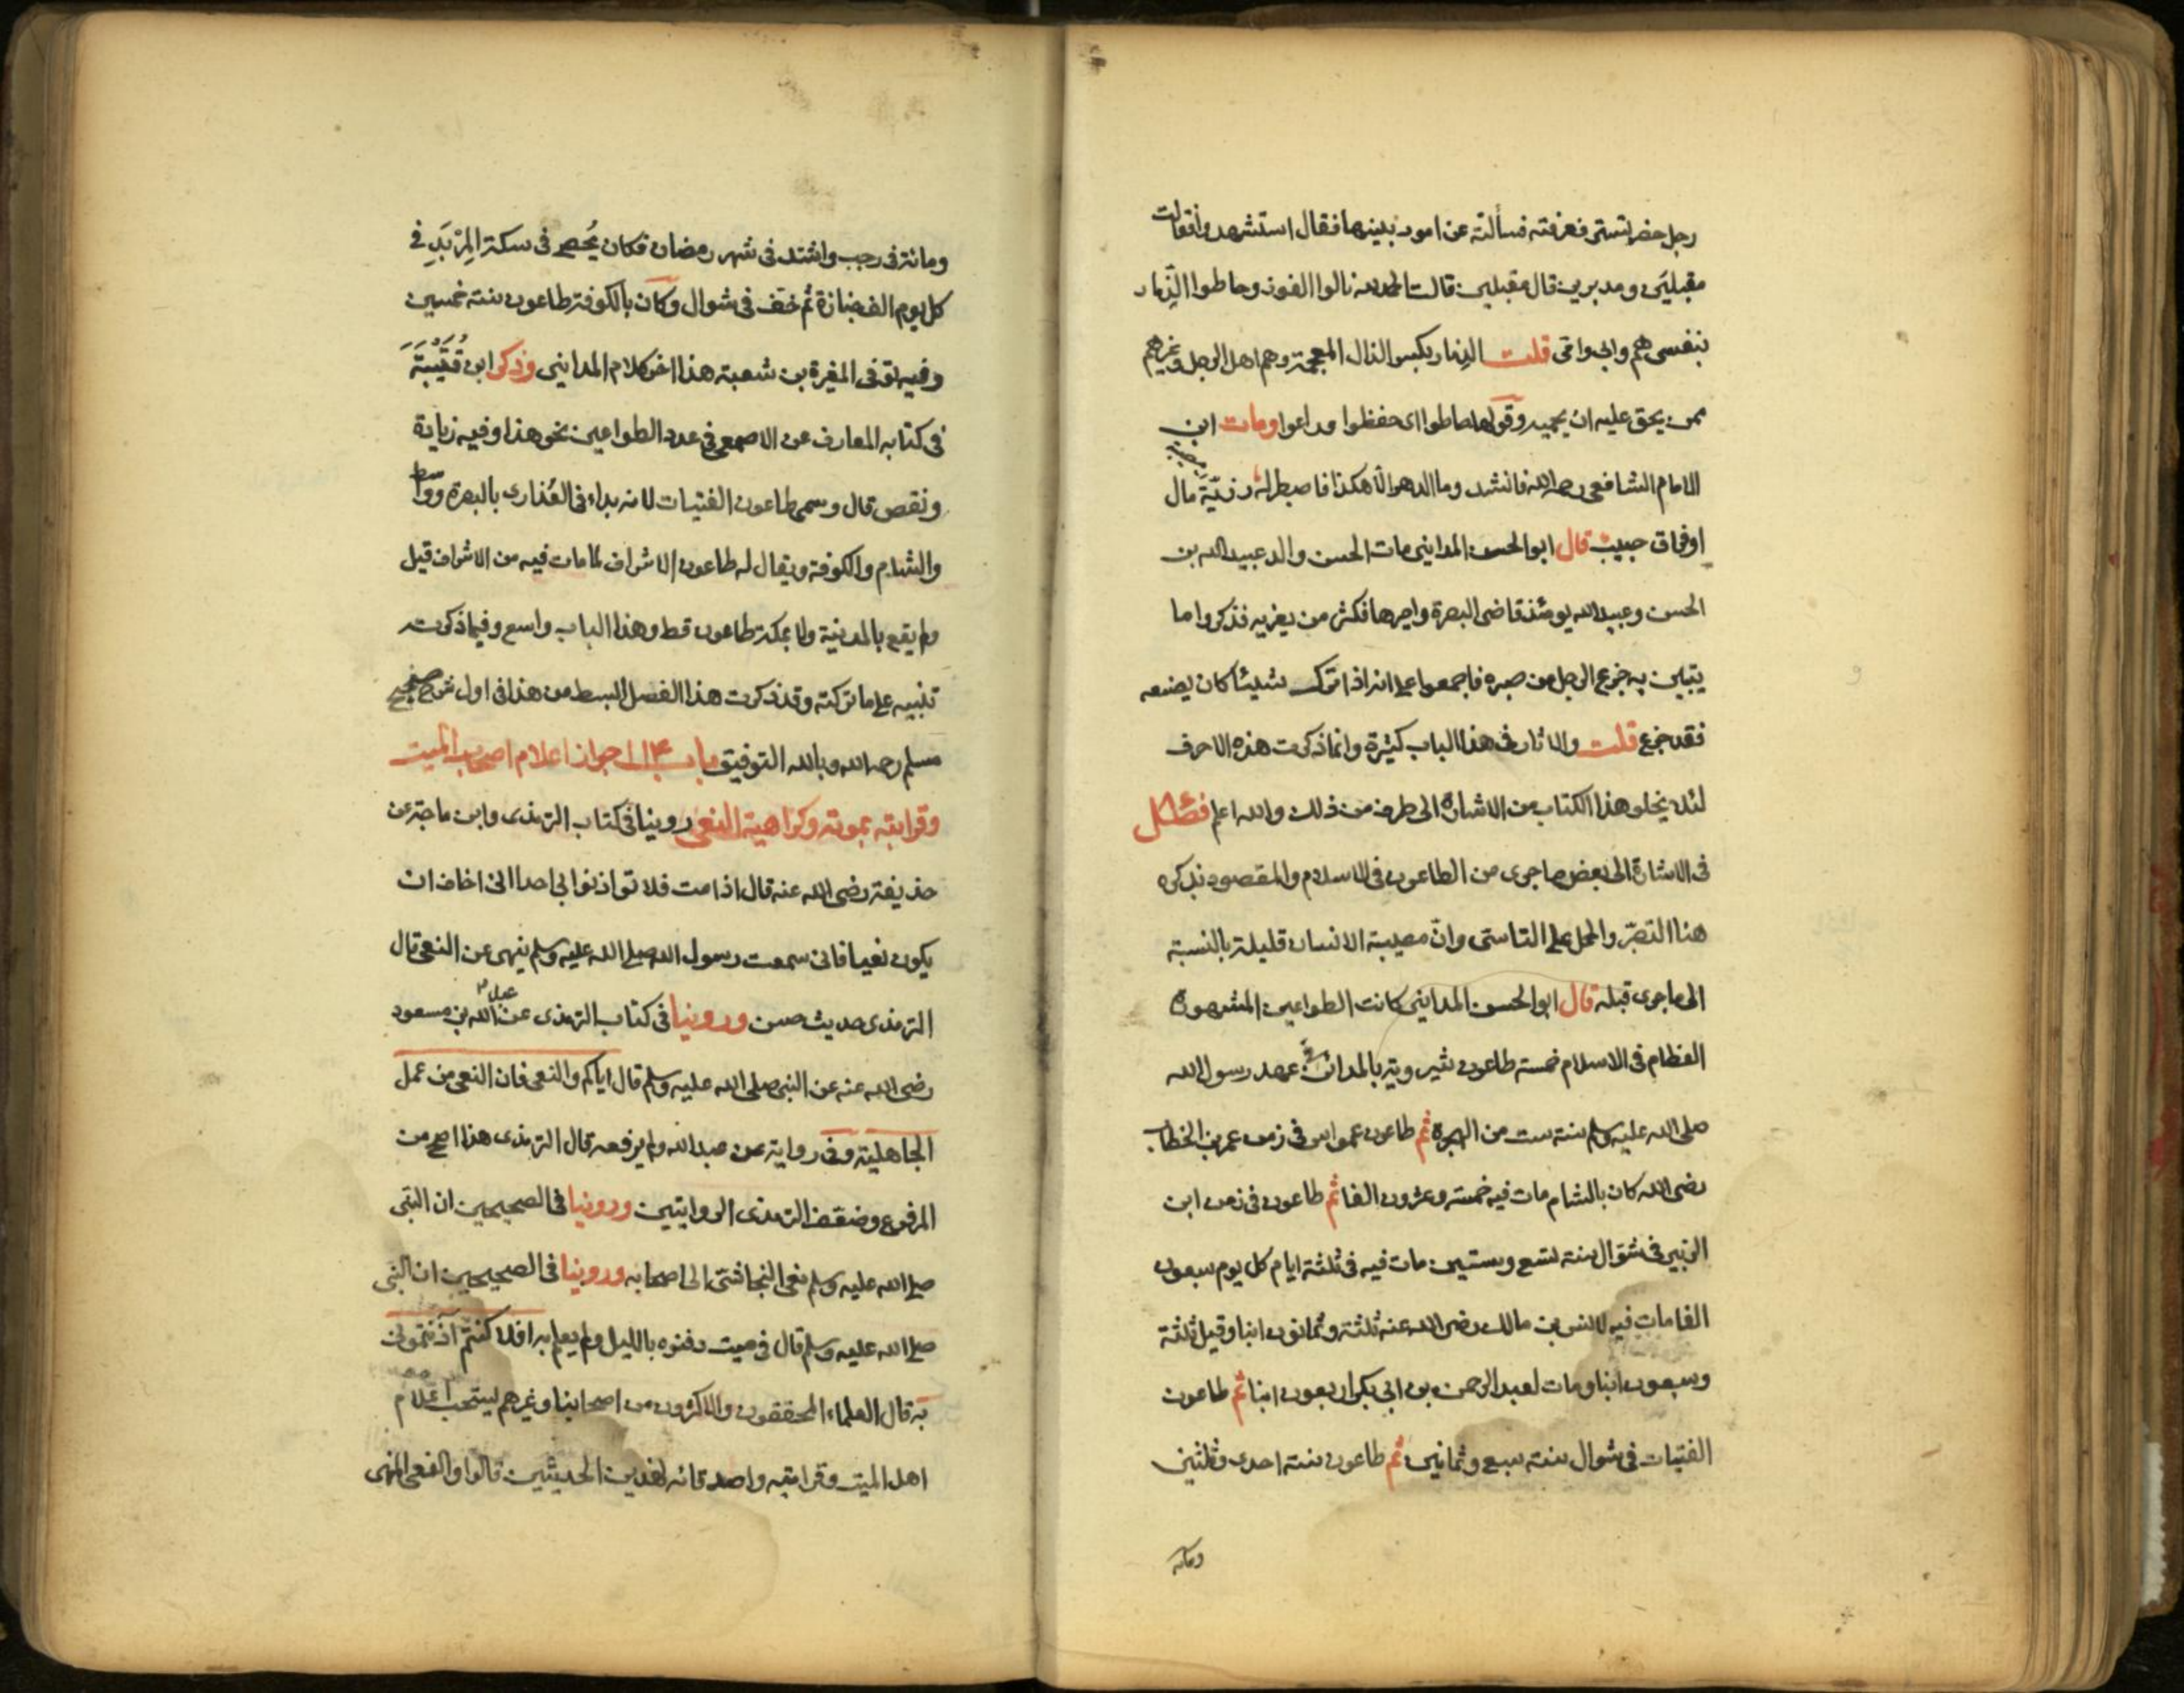 رجل حضر تستر فعرفته فسألته عن امور بنيها فقال استشهدوا فقالت
مقبلين و مدبرين قال مقبلين قالت الحمد لله نالوا الفوز وحاطوا الذمار
بنفسي هم وابي وامي قلت الذمار بكسر الذال المعجمة وهم اهل الرجل وغيرهم
ممن يحق عليه ان يحميه وقولها حاطوا اى حفظوا وراعوا ومات ابن
الامام الشافعي رحمه الله فانشد وما الدهر الا هكذا فاصطبر له رزية مال
او فراق حبيب قال ابو الحسن المدايني مات الحسن والد عبيد الله بن
الحسن وعبيد الله يومئذ قاضى البصرة واميرها فكثر من يعزيه فذكروا ما
يتبين به جزع الرجل من صبره فاجمعوا على انه اذا ترك شيئا كان يصنعه
فقد جزع قلت والاثار في هذا الباب كثيرة وانما ذكرت هذه الاحرف
لئلا يخلو هذا الكتاب من الاشارة الى طرف من ذلك والله اعلم فصل
في الاشارة الى بعض ما جرى من الطاعون في الاسلام والمقصود بذكره
هنا التصبر والحمل على التاسى وان مصيبة الانسان قليلة بالنسبة
الى ما جرى قبله قال ابو الحسن المدايني كانت الطواعين المشهورة
العظام في الاسلام خمسة طاعون شيرويه بالمدائن في عهد رسول الله
صلى الله عليه وسلم سنة ست من الهجرة ثم طاعون عمواس في زمن عمر بن الخطاب
رضى الله كان بالشام مات فيه خمسة وعشرون الفا ثم طاعون في زمن ابن
الزبير في شوال سنة تسع وستين مات فيه في ثلثة ايام كل يوم سبعون
الفا مات فيه لانس بن مالك رضى الله عنه ثلثة وثمانون ابنا وقيل ثلثة
وسبعون ابنا ومات لعبد الرحمن بن ابي بكر اربعون ابنا ثم طاعون
الفتيات في شوال سنة سبع وثمانين ثم طاعون سنة احدى وثلثين
ومائة
ومائة في رجب واشتد في شهر رمضان فكان يُحصى في سكة المِرْبَد في
كل يوم الف جنازة ثم خف في شوال وكان بالكوفة طاعون سنة خمسين
وفيه توفى المغيرة بن شعبة هذا اخر كلام المدايني وذكر ابن قُتَيْبَة
في كتابه المعارف عن الاصمعي في عدد الطواعين نحو هذا وفيه زيادة
ونقص قال وسمى طاعون الفتيات لانه بداء في العذارى بالبصرة وواسط
والشام والكوفة ويقال له طاعون الاشراف لما مات فيه من الاشراف قيل
ولم يقع بالمدينة ولا بمكة طاعون قط وهذا الباب واسع وفيما ذكرت
تنبيه على ما تركته وقد ذكرت هذا الفصل ابسط من هذا في اول شرح صحيح
مسلم رحمه الله وبالله التوفيق باب ١١٤ جواز اعلام اصحاب الميت
وقرابته بموته وكراهية النعى روينا في كتاب الترمذى وابن ماجة عن
حذيفة رضى الله عنه قال اذا مت فلا تواذنوا بي احدا اني اخاف ان
يكون نعيا فاني سمعت رسول الله صلى الله عليه وسلم ينهى عن النعى قال
الترمذى حديث حسن وروينا في كتاب الترمذى عن عبد الله بن مسعود
رضى الله عنه عن النبي صلى الله عليه وسلم قال اياكم والنعى فان النعى من عمل
الجاهلية وفي رواية عن عبد الله ولم يرفعه قال الترمذى هذا اصح من
المرفوع وضعف الترمذى الروايتين وروينا في الصحيحين ان النبي
صلى الله عليه وسلم نعى النجاشى الى اصحابه وروينا في الصحيحين ان النبي
صلى الله عليه وسلم قال في ميت دفنوه بالليل ولم يعلم به افلا كنتم اذنتموني
به قال العلماء المحققون والاكثرون من اصحابنا وغيرهم يستحب اعلام
اهل الميت وقرابته واصدقائه لهذين الحديثين قالوا والنعى المنهى